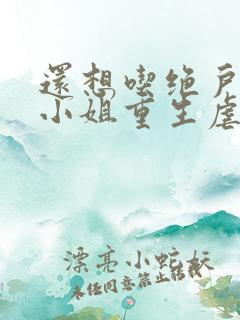 還想喫绝戶
小姐重生虐
漂亮小蛇妖
未任同意禁止转载